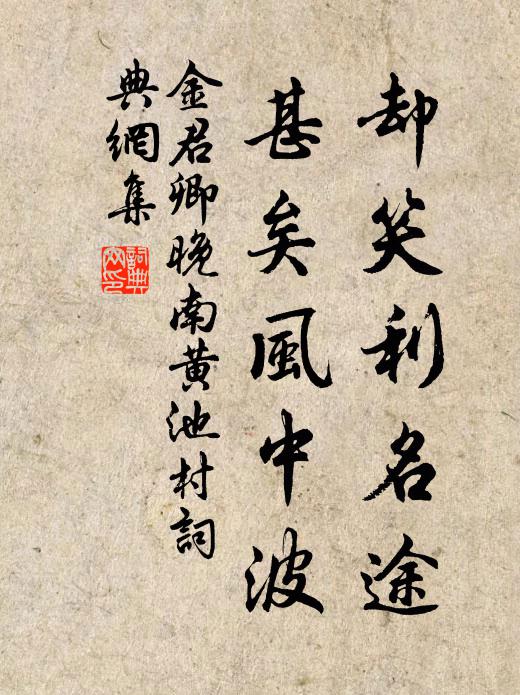 却笑利名途
甚矣風中波
金君卿晚南黃池村詞
典網集
詞典